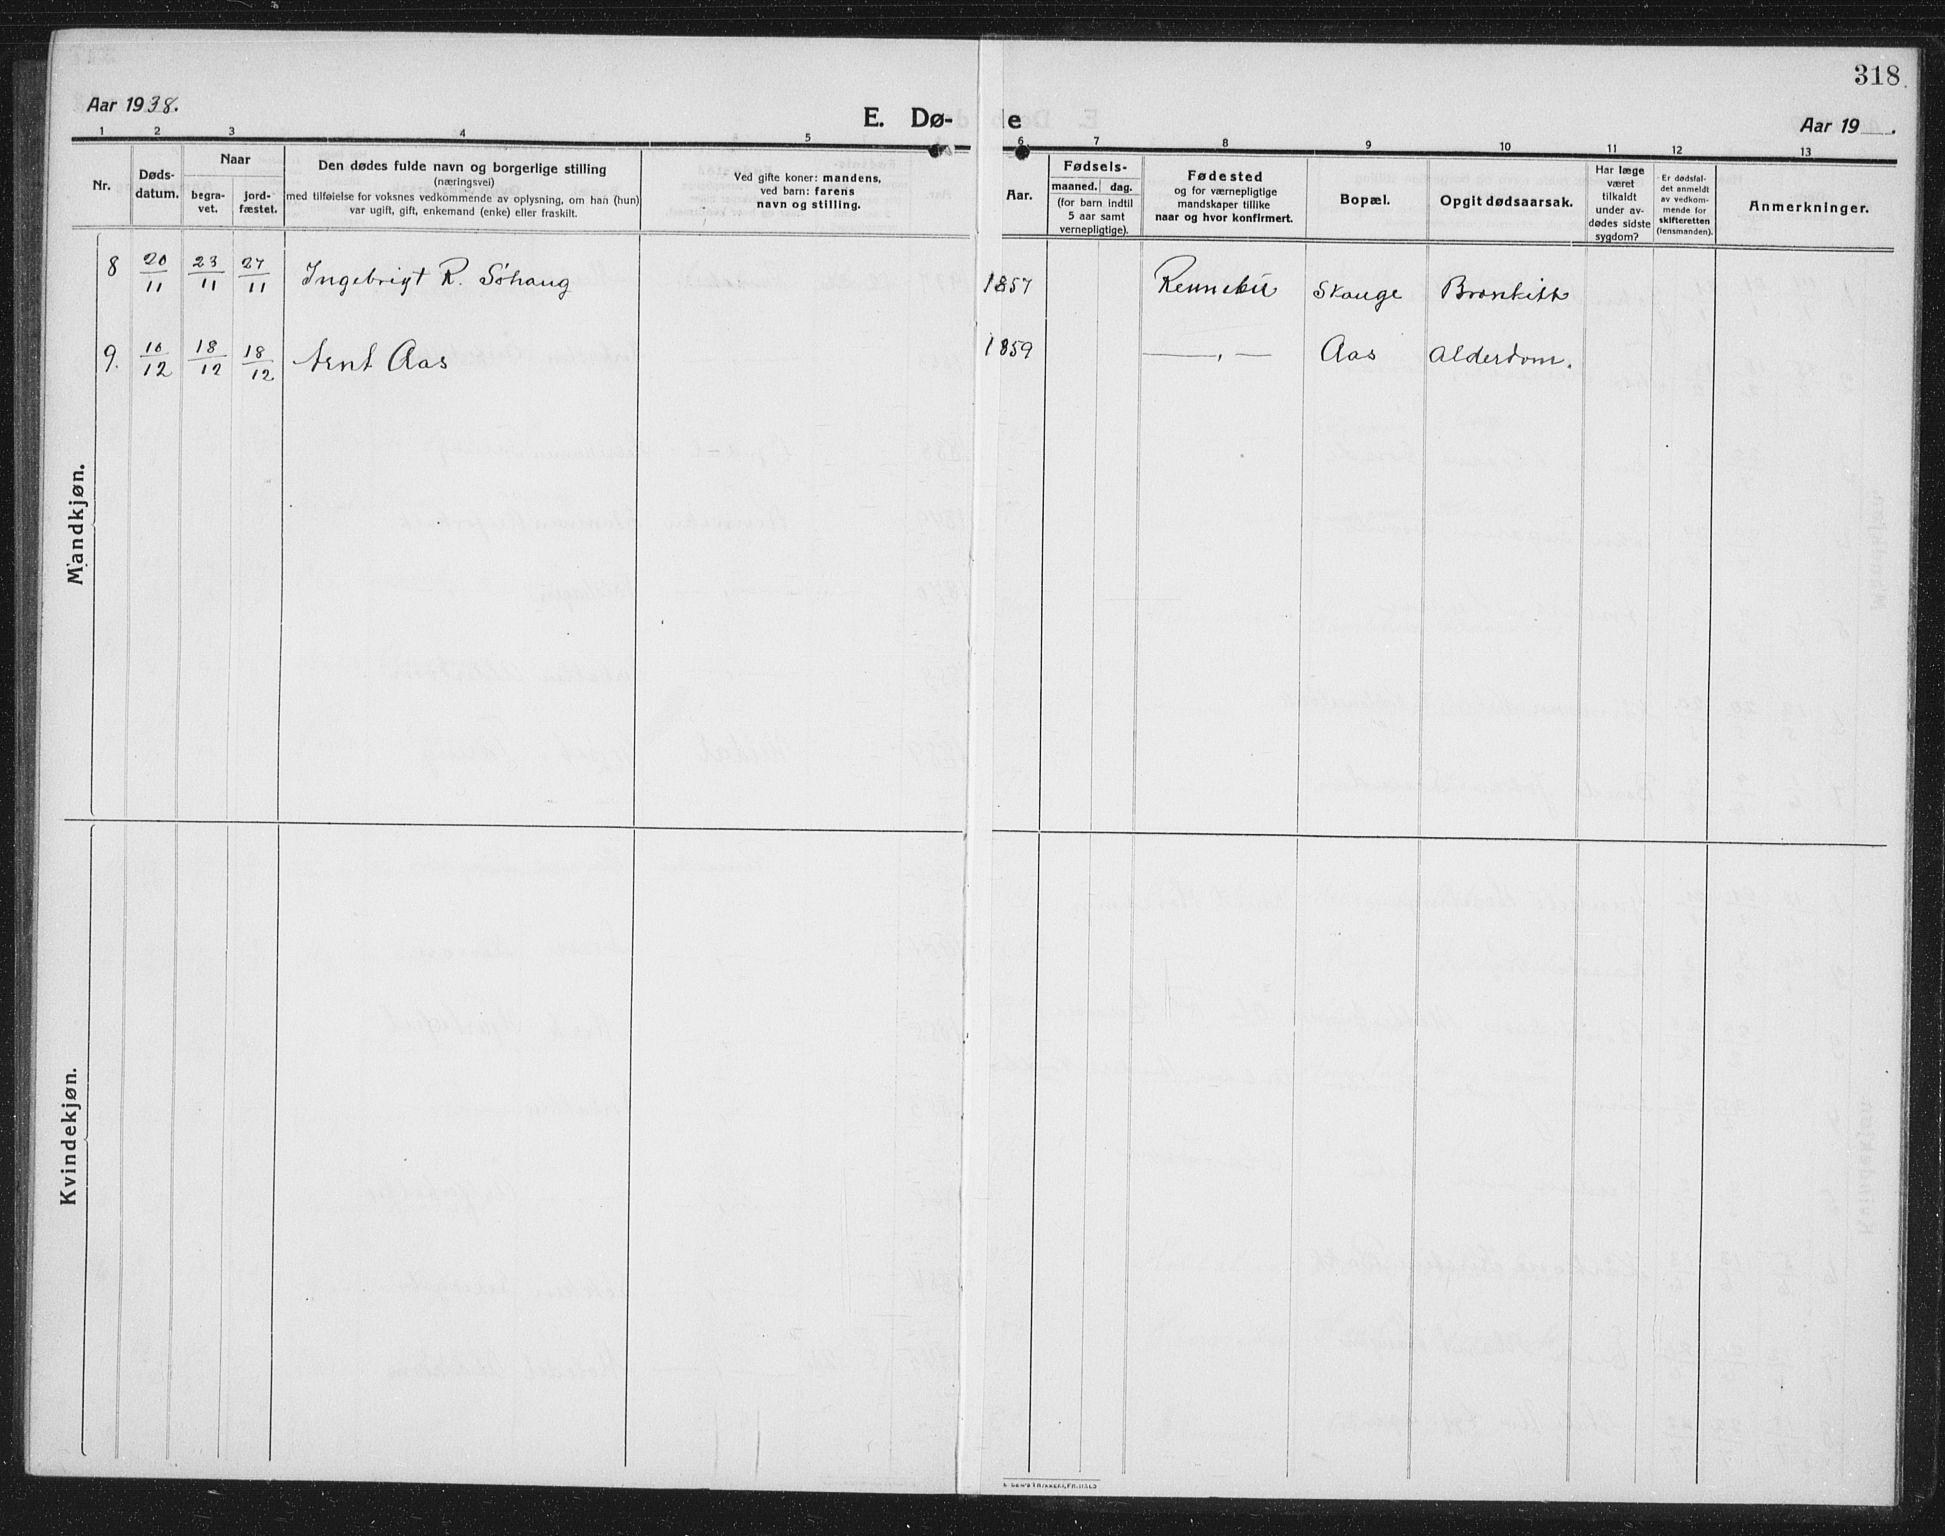 318.
Aar 1938.
E. Dø-
de
Aar 19___.
1 2 3 4 5 6 7 8 9 10 11 12 13
Nr.
Døds-
datum.
Naar
begra-
vet.
jord-
fæstet.
Den dødes fulde navn og borgerlige stilling
(næringsvei)
med tilføielse for voksnes vedkommende av oplysning, om han (hun)
var ugift, gift, enkemand (enke) eller fraskilt.
Ved gifte koner: mandens,
ved barn: farens
navn og stilling.
Aar.
Fødsels-
maaned. dag.
(for barn indtil
5 aar samt
vernepligtige).
Fødested
og for værnepligtige
mandskaper tillike
naar og hvor konfirmert.
Bopæl.
Opgit dødsaarsak.
Har læge
været
tilkaldt
under av-
dødes sidste
sygdom?
Er dødsfal-
det anmeldt
av vedkom-
mende for
skifteretten
(lensmanden).
Anmerkninger.
Mandkjøn.
8 20/11 23/11 27/11 Ingebrigt R. Söhaug 1857 Rennebu Skauge Bronkitt
9. 10/12 18/12 18/12 Arnt Aas 1859 —„— Aas Alderdom.
Kvindekjøn.